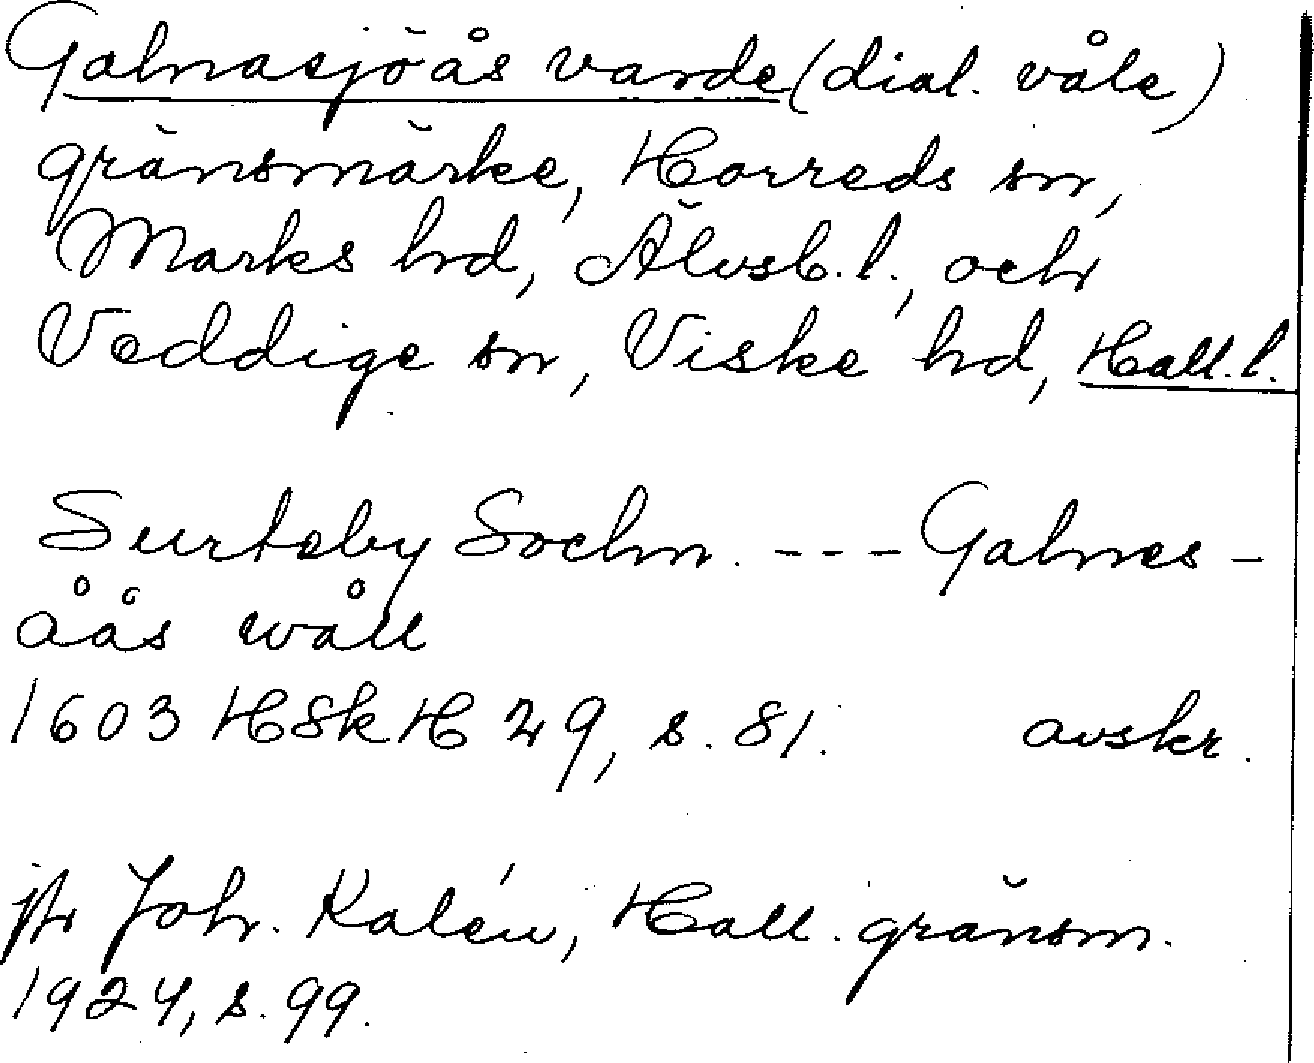 Galnasjöås varde (dial. våle)
gränsmärke, Horreds sn,
Marks hd, Älvsb. l., och
Veddige sn, Viske hd, Hall. l.
Surteby Sochn. --- Galnes-
åås wåll
1603 HSkH 29, s. 81. avskr.
jfr Joh. Kalén, Hall. gränsm.
1924, s. 99.